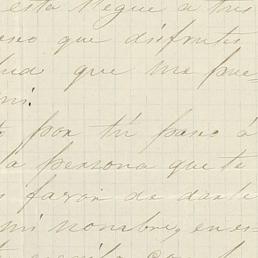 esta llegue a tus
eseo que disfrutes
lud que me pue-
mi.
por tú paso á
la persona que te
favor de darte
mi nombre, en es